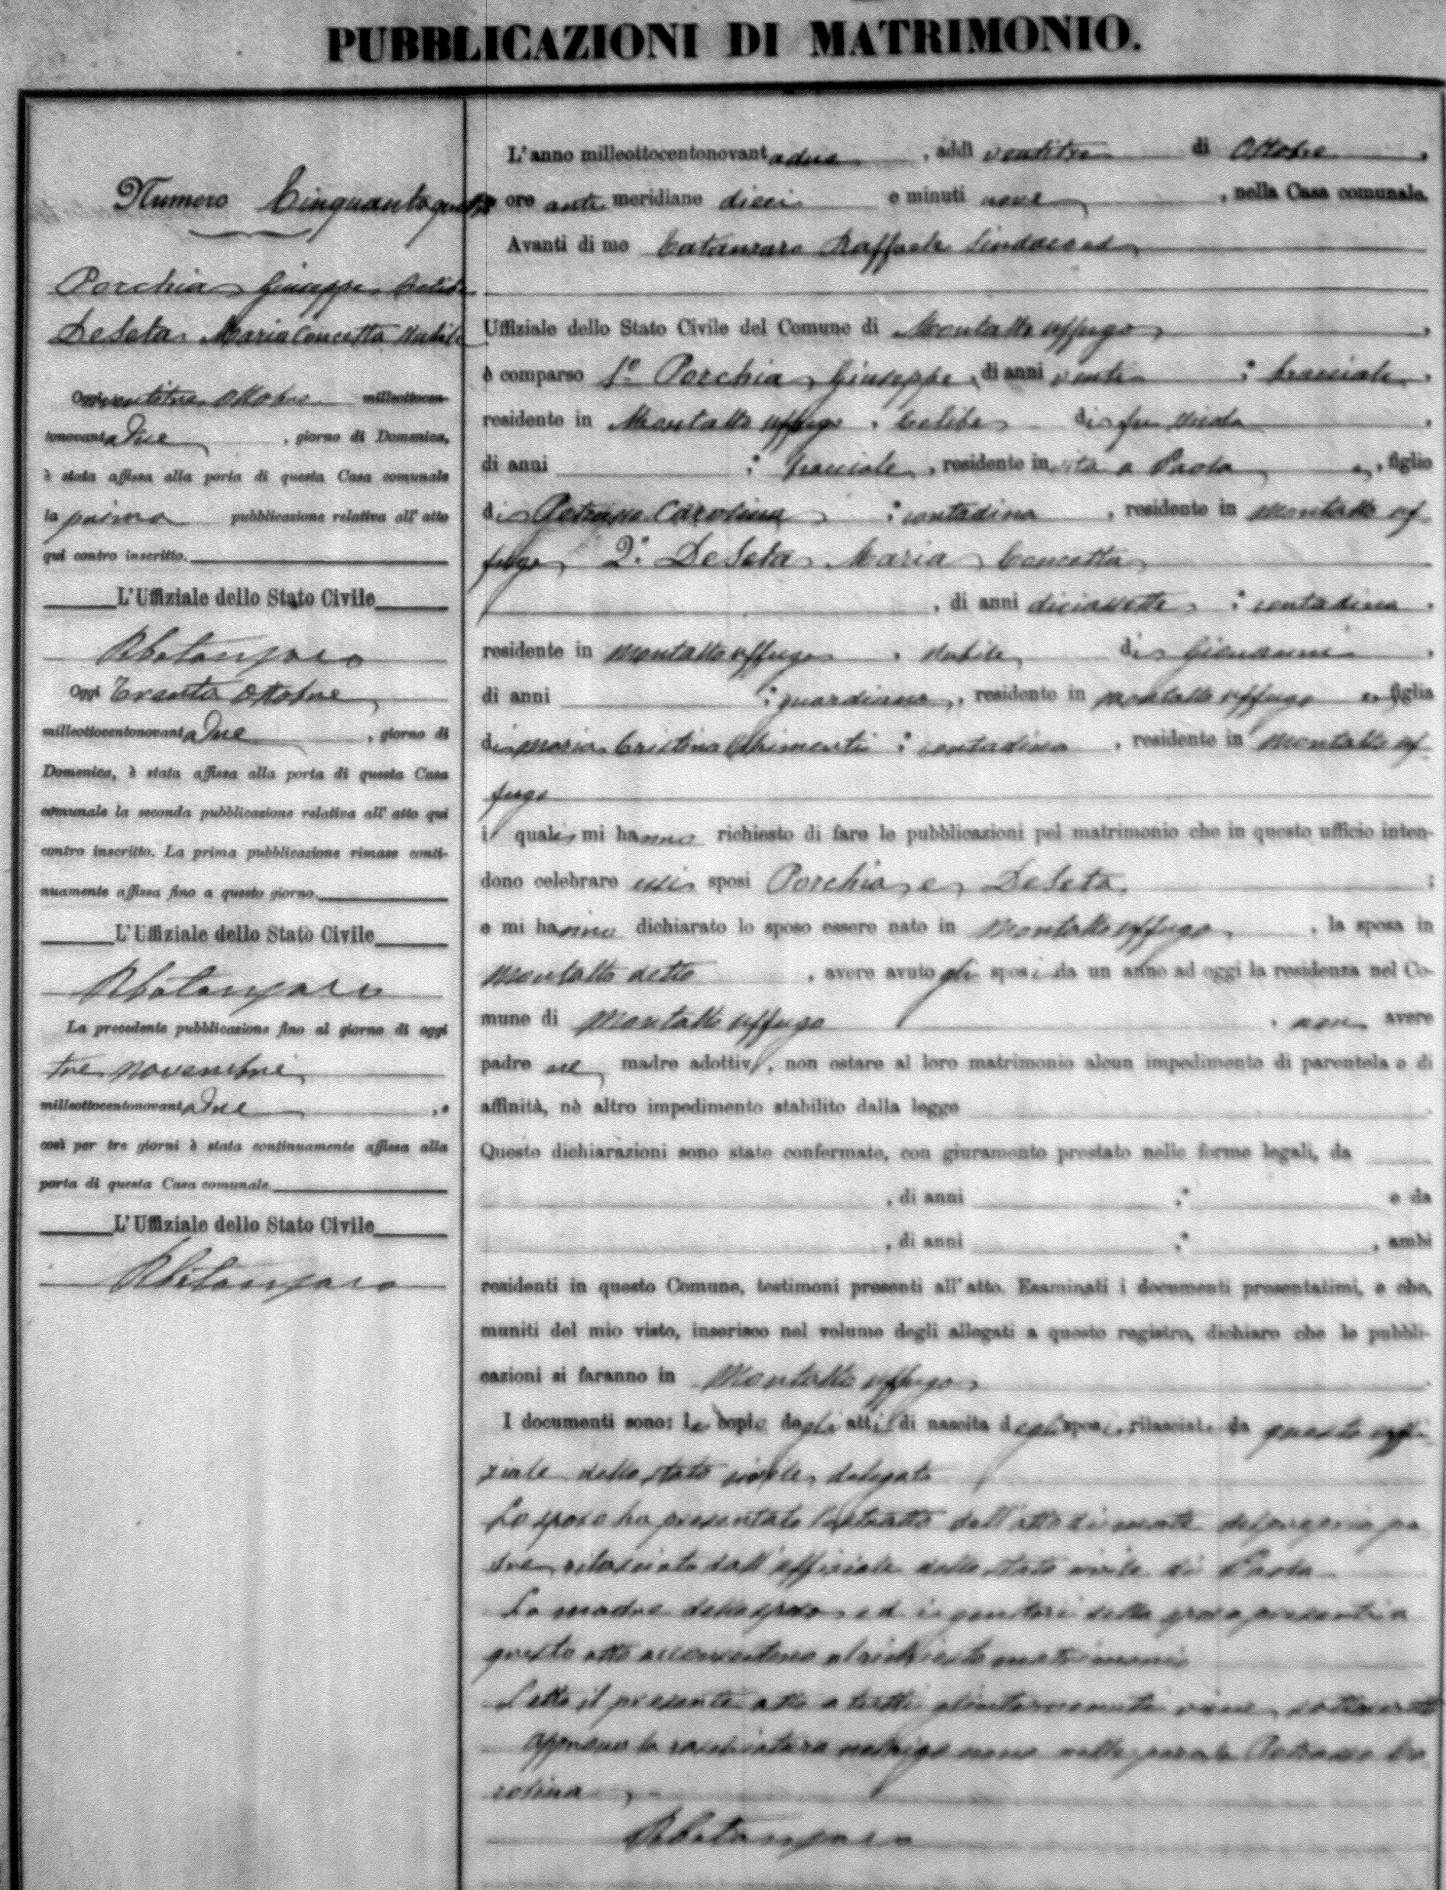 PUBBLICAZIONI DI MATRIMONIO.
Numero
Porchia Giuseppe Celibe
DeSeta Maria Concetta Nubile
Oggi ventitre Ottobre milleottocen-
tonovantadue, giorno di Domenica,
è stata affissa alla porta di questa Casa comunale
la prima pubblicazione relativa all'atto
qui contro inscritto.
L'Uffiziale dello Stato Civile
RCatanzaro
Oggi Trenta Ottobre
milleottocentonovantadue, giorno di
Domenica, è stata affissa alla porta di questa Casa
comunale la seconda pubblicazione relativa all'atto qui
contro inscritto. La prima pubblicazione rimase conti-
nuamente affissa fino a questo giorno.
L'Uffiziale dello Stato Civile
RCatanzaro
La precedente pubblicazione fino al giorno di oggi
tre novembre
milleottocentonovantadue, e
così per tre giorni è stata continuamente affissa alla
porta di questa Casa comunale.
L'Uffiziale dello Stato Civile
RCatanzaro
L'anno milleottocentonovantadue, addì ventitre di Ottobre,
ore anti meridiane dieci e minuti nove, nella Casa comunale.
Avanti di me Catanzaro Raffaele Sindaco ed
Uffiziale dello Stato Civile del Comune di Montalto uffugo,
è comparso 1° Porchia Giuseppe, di anni venti; bracciale,
residente in Montalto uffugo, Celibe di fu Nicola,
di anni ; bracciale, residente in vita a Paola e, figlio
di Petrasso Carolina; contadina, residente in Montalto uf-
fugo, 2° DeSeta Maria Concetta
, di anni diciassette; contadina,
residente in Montalto uffugo, Nubile, di Giovanni,
di anni ; guardiano, residente in Montalto uffugo e figlia
di Maria Cristina Chimenti; contadina, residente in Montalto uf-
fugo
i quali mi hanno richiesto di fare le pubblicazioni pel matrimonio che in questo ufficio inten-
dono celebrare essi sposi Porchia e DeSeta;
e mi hanno dichiarato lo sposo essere nato in Montalto uffugo, la sposa in
Montalto detto, avere avuto gli sposi da un anno ad oggi la residenza nel Co-
mune di Montalto uffugo, non avere
padre ne madre adottivi, non ostare al loro matrimonio alcun impedimento di parentela o di
affinità, nè altro impedimento stabilito dalla legge
Queste dichiarazioni sono state confermate, con giuramento prestato nelle forme legali, da
, di anni ; e da
, di anni ; , ambi
residenti in questo Comune, testimoni presenti all'atto. Esaminati i documenti presentatimi, e che,
muniti del mio visto, inserisco nel volume degli allegati a questo registro, dichiaro che le pubbli-
cazioni si faranno in Montalto uffugo
I documenti sono: le copie degli atti di nascita degli sposi rilasciate da questo uffi-
ziale dello stato civile delegato
Lo sposo ha presentato l'estratto dell'atto di morte del proprio pa
dre, rilasciato dall'uffiziale dello stato civile di Paola
La madre dello sposo ed i genitori della sposa presenti a
questo atto acconsentono al richiesto matrimonio
Letto il presente atto a tutti gl'intervenuti viene sottoscritto
Approvo la raschiatura nelle parole Petrasso Ca
rolina
RCatanzaro